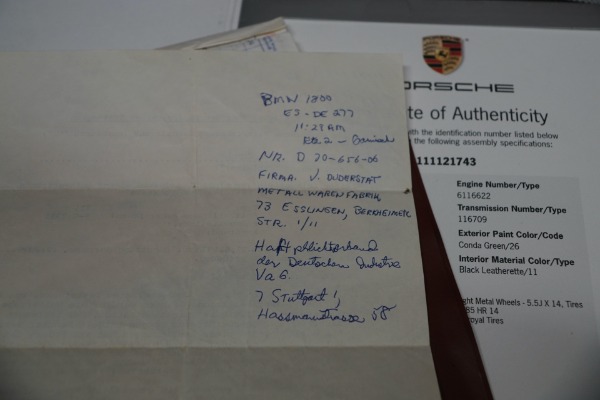 BMW 1800
ES - DE 277
11:27 AM
NR. D 20-656-06
FIRMA V. DUDERSTAT
METALLWARENFABRIK
73 ESSLINGEN, BERKHEIMER
STR. 1/11
Haftpflichtverband
der Deutschen Industrie
VaG.
7 Stuttgart 1,
58
PORSCHE
te of Authenticity
with the identification number listed below
the following assembly specifications:
111121743
Engine Number/Type
6116622
Transmission Number/Type
116709
Exterior Paint Color/Code
Conda Green/26
Interior Material Color/Type
Black Leatherette/11
ght Metal Wheels - 5.5J X 14, Tires
85 HR 14
royal Tires